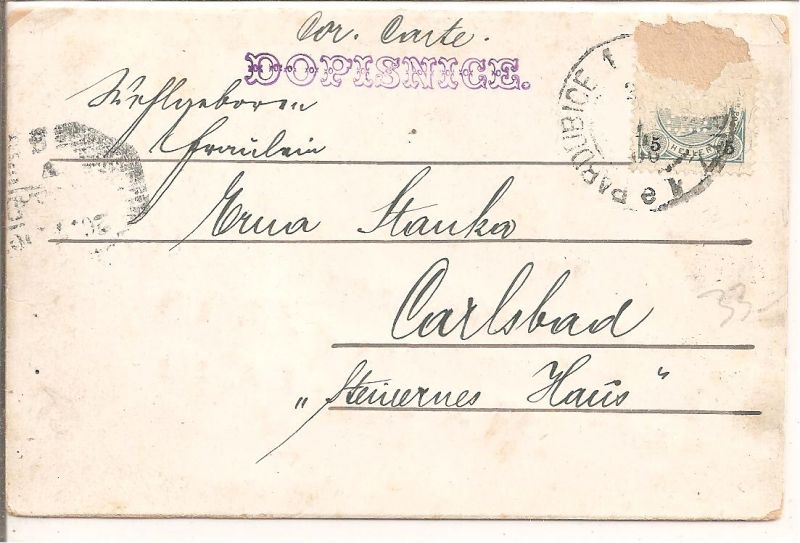 Cor. Carte.
DOPISNICE.
Wohlgeboren
Fräulein
Erna Stanka
Carlsbad
„Steinernes Haus"
PARDUBICE 1
5 HELLER 5
33-